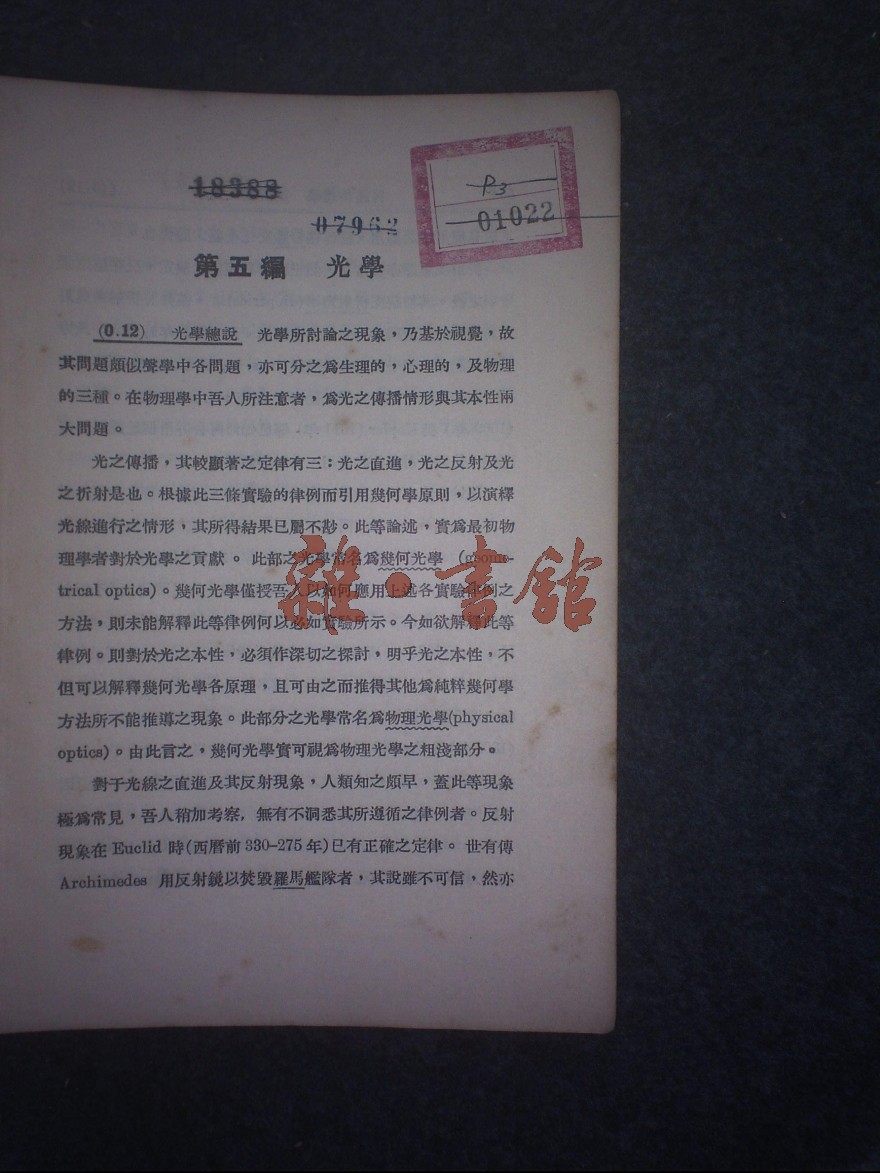 18388
07962
P.3
01022
第五編 光學
(0.12) 光學總說 光學所討論之現象，乃基於視覺，故
其問題頗似聲學中各問題，亦可分之爲生理的，心理的，及物理
的三種。在物理學中吾人所注意者，爲光之傳播情形與其本性兩
大問題。
光之傳播，其較顯著之定律有三：光之直進，光之反射及光
之折射是也。根據此三條實驗的律例而引用幾何學原則，以演繹
光線進行之情形，其所得結果已屬不尠。此等論述，實爲最初物
理學者對於光學之貢獻。此部之光學常名爲幾何光學 (geome-
trical optics)。幾何光學僅授吾人以如何應用上述各實驗律例之
方法，則未能解釋此等律例何以必如實驗所示。今如欲解釋此等
律例。則對於光之本性，必須作深切之探討，明乎光之本性，不
但可以解釋幾何光學各原理，且可由之而推得其他爲純粹幾何學
方法所不能推導之現象。此部分之光學常名爲物理光學(physical
optics)。由此言之，幾何光學實可視爲物理光學之粗淺部分。
對于光線之直進及其反射現象，人類知之頗早，蓋此等現象
極爲常見，吾人稍加考察，無有不洞悉其所遵循之律例者。反射
現象在 Euclid 時(西曆前330-275年)已有正確之定律。世有傳
Archimedes 用反射鏡以焚毀羅馬艦隊者，其說雖不可信，然亦
雜·書館